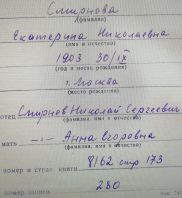 Смирнова
(фамилия)
Екатерина Николаевна
(имя и отчество)
1903 30/IX
(год и месяц рождения)
г. Москва
(место рождения)
отец Смирнов Николай Сергеевич
(фамилия, имя и отчество)
мать —"— Анна Егоровна
(фамилия, имя и отчество)
8162 стр 173
номер и стран. книги
номер записи
280